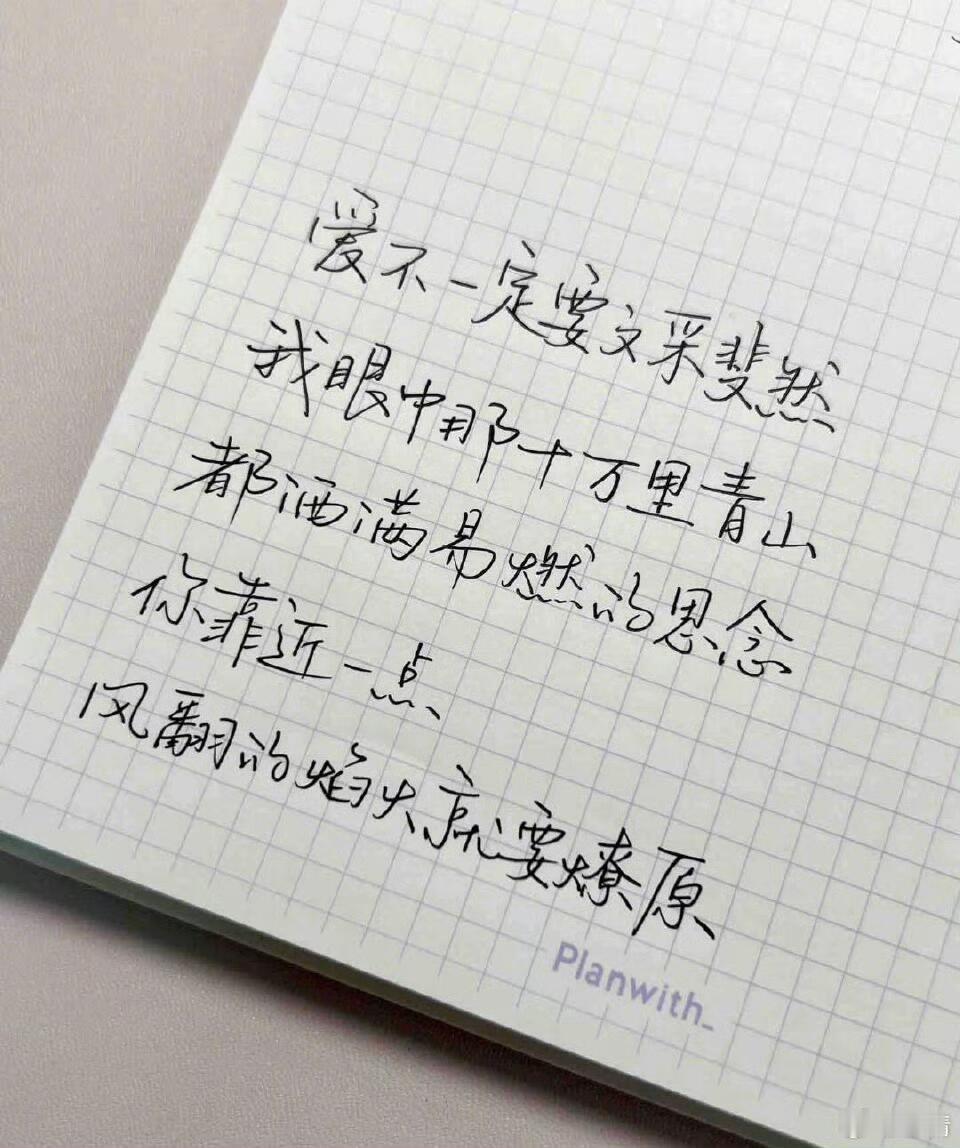 爱不一定要文采斐然
我眼中那十万里青山
都洒满易燃的思念
你靠近一点
风翻的焰火就要燎原
Planwith_